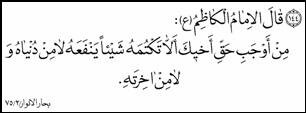 (١٤٤) قَالَ الإِمَامُ الْكَاظِمُ (ع):
مِنْ أَوْجَبِ حَقِّ أَخِيكَ أَلَّا تَكْتُمَهُ شَيْئاً يَنْفَعَهُ لَامِنْ دُنْيَاهُ وَ
لَامِنْ اخِرَتِهِ.
بحار الانوار ٧٥/٢